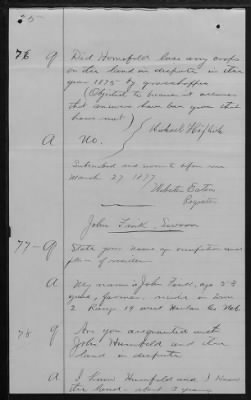 25
76 Q Did Humfeld lose any crop
on the land in dispute in the
year 1875 by grasshoppers
(Objected to because it assumes
that answers have been given that
have not)
A No. Michael Highick
Subscribed and sworn to before me
March 27 1877
Webster Eaton
Register
John Fink, Sworn
77 Q State your name age occupation and
place of residence
A My name is John Fink, age 53
years, farmer, reside in Town
2 Range 19 west Harlan Co Neb.
78 Q Are you acquainted with
John Humfeld and the
land in dispute
A I know Humfeld and I know
the land about 3 years